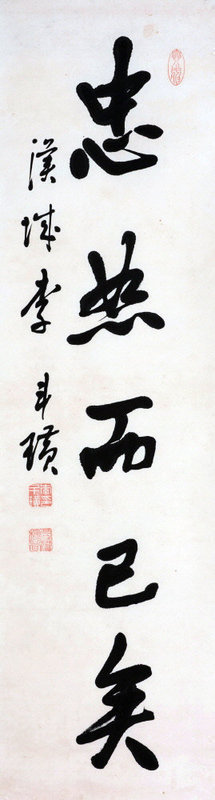 忠恕而已矣
漢城李斗璜